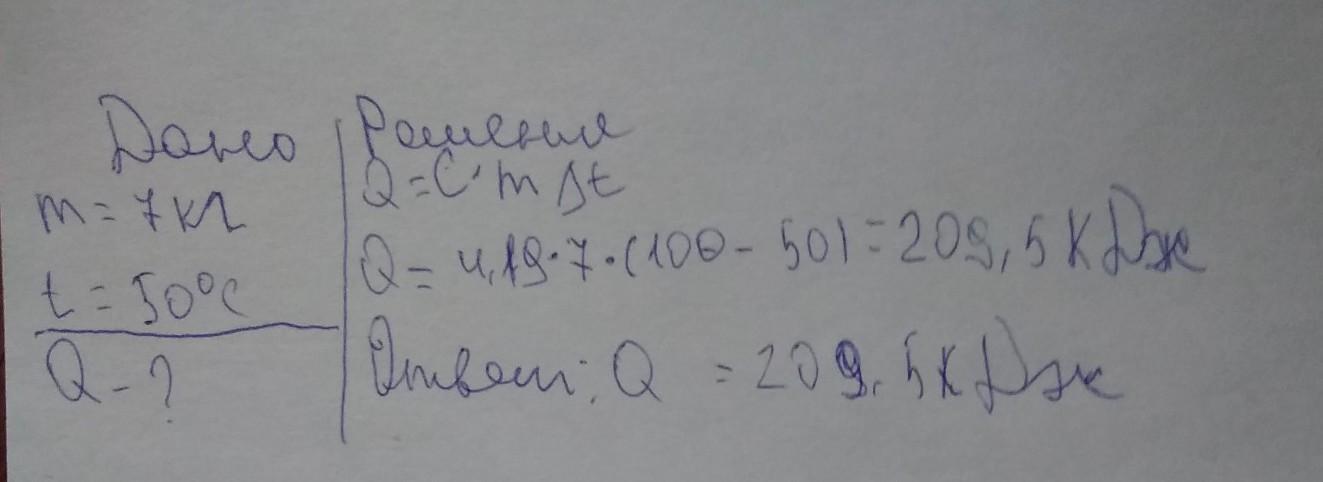 Дано
m = 7 кг
t = 50°C
Q - ?
Решения
Q = C · m Δt
Q = 4,19 · 7 · (100 - 50) = 209,5 КДж
Ответ: Q = 209,5 КДж